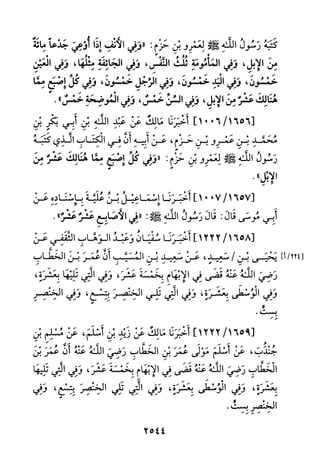 كَتَبَهُ رَسُولُ اللَّهِ ﷺ لِعَمْرِو بْنِ حَزْمٍ: «وَفِي الْأَنْفِ إِذَا أُوْعِيَ جَدْعَاً مَائَةٌ
مِنَ الإِبِلِ، وَفِي المَأْمُومَةِ ثُلُثُ النَّفْسِ، وَفِي الجَائِفَةِ مِثْلُهَا، وَفِي الْعَيْنِ
خَمْسُونَ، وَفِي الْيَدِ خَمْسُونَ، وَفِي الرِّجْلِ خَمْسُونَ، وَفِي كُلِّ إِصْبَعٍ مِمَّا
هُنَالِكَ عَشْرٌ مِنَ الإِبِلِ، وَفِي السِّنِّ خَمْسٌ، وَفِي الْمُوضِحَةِ خَمْسٌ».
[١٠٠٦/١٦٥٦] أَخْبَرَنَا مَالِكٌ عَنْ عَبْدِ اللَّهِ بْنِ أَبِي بَكْرِ بْنِ
مُحَمَّدِ بْنِ عَمْرِو بْنِ حَزْمٍ، عَنْ أَبِيهِ أَنَّ فِي الْكِتَابِ الَّذِي كَتَبَهُ
رَسُولُ اللَّهِ ﷺ لِعَمْرِو بْنِ حَزْمٍ: «وَفِي كُلِّ إِصْبَعٍ مِمَّا هُنَالِكَ عَشْرٌ مِنَ
الإِبِلِ».
[١٠٠٧/١٦٥٧] أَخْبَرَنَا إِسْمَاعِيْلُ بْنُ عُلَيَّةَ بِإِسْنَادِهِ عَنْ
أَبِي مُوسَى قَالَ: قَالَ رَسُولُ اللَّهِ ﷺ: «فِي الْأَصَابِعِ عَشْرٌ عَشْرٌ».
[١٢٢٢/١٦٥٨] أَخْبَرَنَا سُفْيَانُ وَعَبْدُ الْوَهَّابِ الثَّقَفِي عَنْ
يَحْيَى بْنِ / سَعِيدٍ، عَنْ سَعِيدِ بْنِ المُسَيِّبِ أَنَّ عُمَرَ بْنَ الْخَطَّابِ [٢٢٤/أ]
رَضِيَ اللَّهُ عَنْهُ قَضَى فِي الإِبْهَامِ بِخَمْسَةَ عَشَرَ، وَفِي الَّتِي تَلِيْهَا بِعَشَرَةٍ،
وَفِي الْوُسْطَى بِعَشَرَةٍ، وَفِي الَّتِي تَلِي الْخِنْصِرَ بِتِسْعٍ، وَفِي الْخِنْصِرِ
بِسِتٍّ.
[١٢٢٢/١٦٥٩] أَخْبَرَنَا مَالِكٌ عَنْ زَيْدِ بْنِ أَسْلَمَ، عَنْ مُسْلِمِ بْنِ
جُنْدُبَ، عَنْ أَسْلَمَ مَوْلَى عُمَرَ بْنِ الخَطَّابِ رَضِيَ اللَّهُ عَنْهُ أَنَّ عُمَرَ بْنَ
الْخَطَّابِ رَضِيَ اللَّهُ عَنْهُ قَضَى فِي الإِبْهَامِ بِخَمْسَةَ عَشَرَ، وَفِي الَّتِي تَلِيهَا
بِعَشَرَةٍ، وَفِي الْوُسْطَى بِعَشَرَةٍ، وَفِي الَّتِي تَلِي الْخِنْصِرَ بِتِسْعٍ، وَفِي
الْخِنْصِرِ بِسِتٍّ.
٢٥٤٤